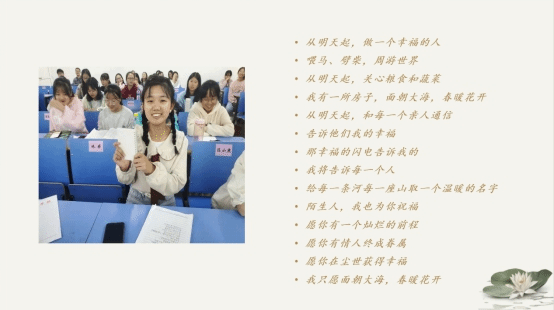 从明天起，做一个幸福的人
喂马、劈柴，周游世界
从明天起，关心粮食和蔬菜
我有一所房子，面朝大海，春暖花开
从明天起，和每一个亲人通信
告诉他们我的幸福
那幸福的闪电告诉我的
我将告诉每一个人
给每一条河每一座山取一个温暖的名字
陌生人，我也为你祝福
愿你有一个灿烂的前程
愿你有情人终成眷属
愿你在尘世获得幸福
我只愿面朝大海，春暖花开